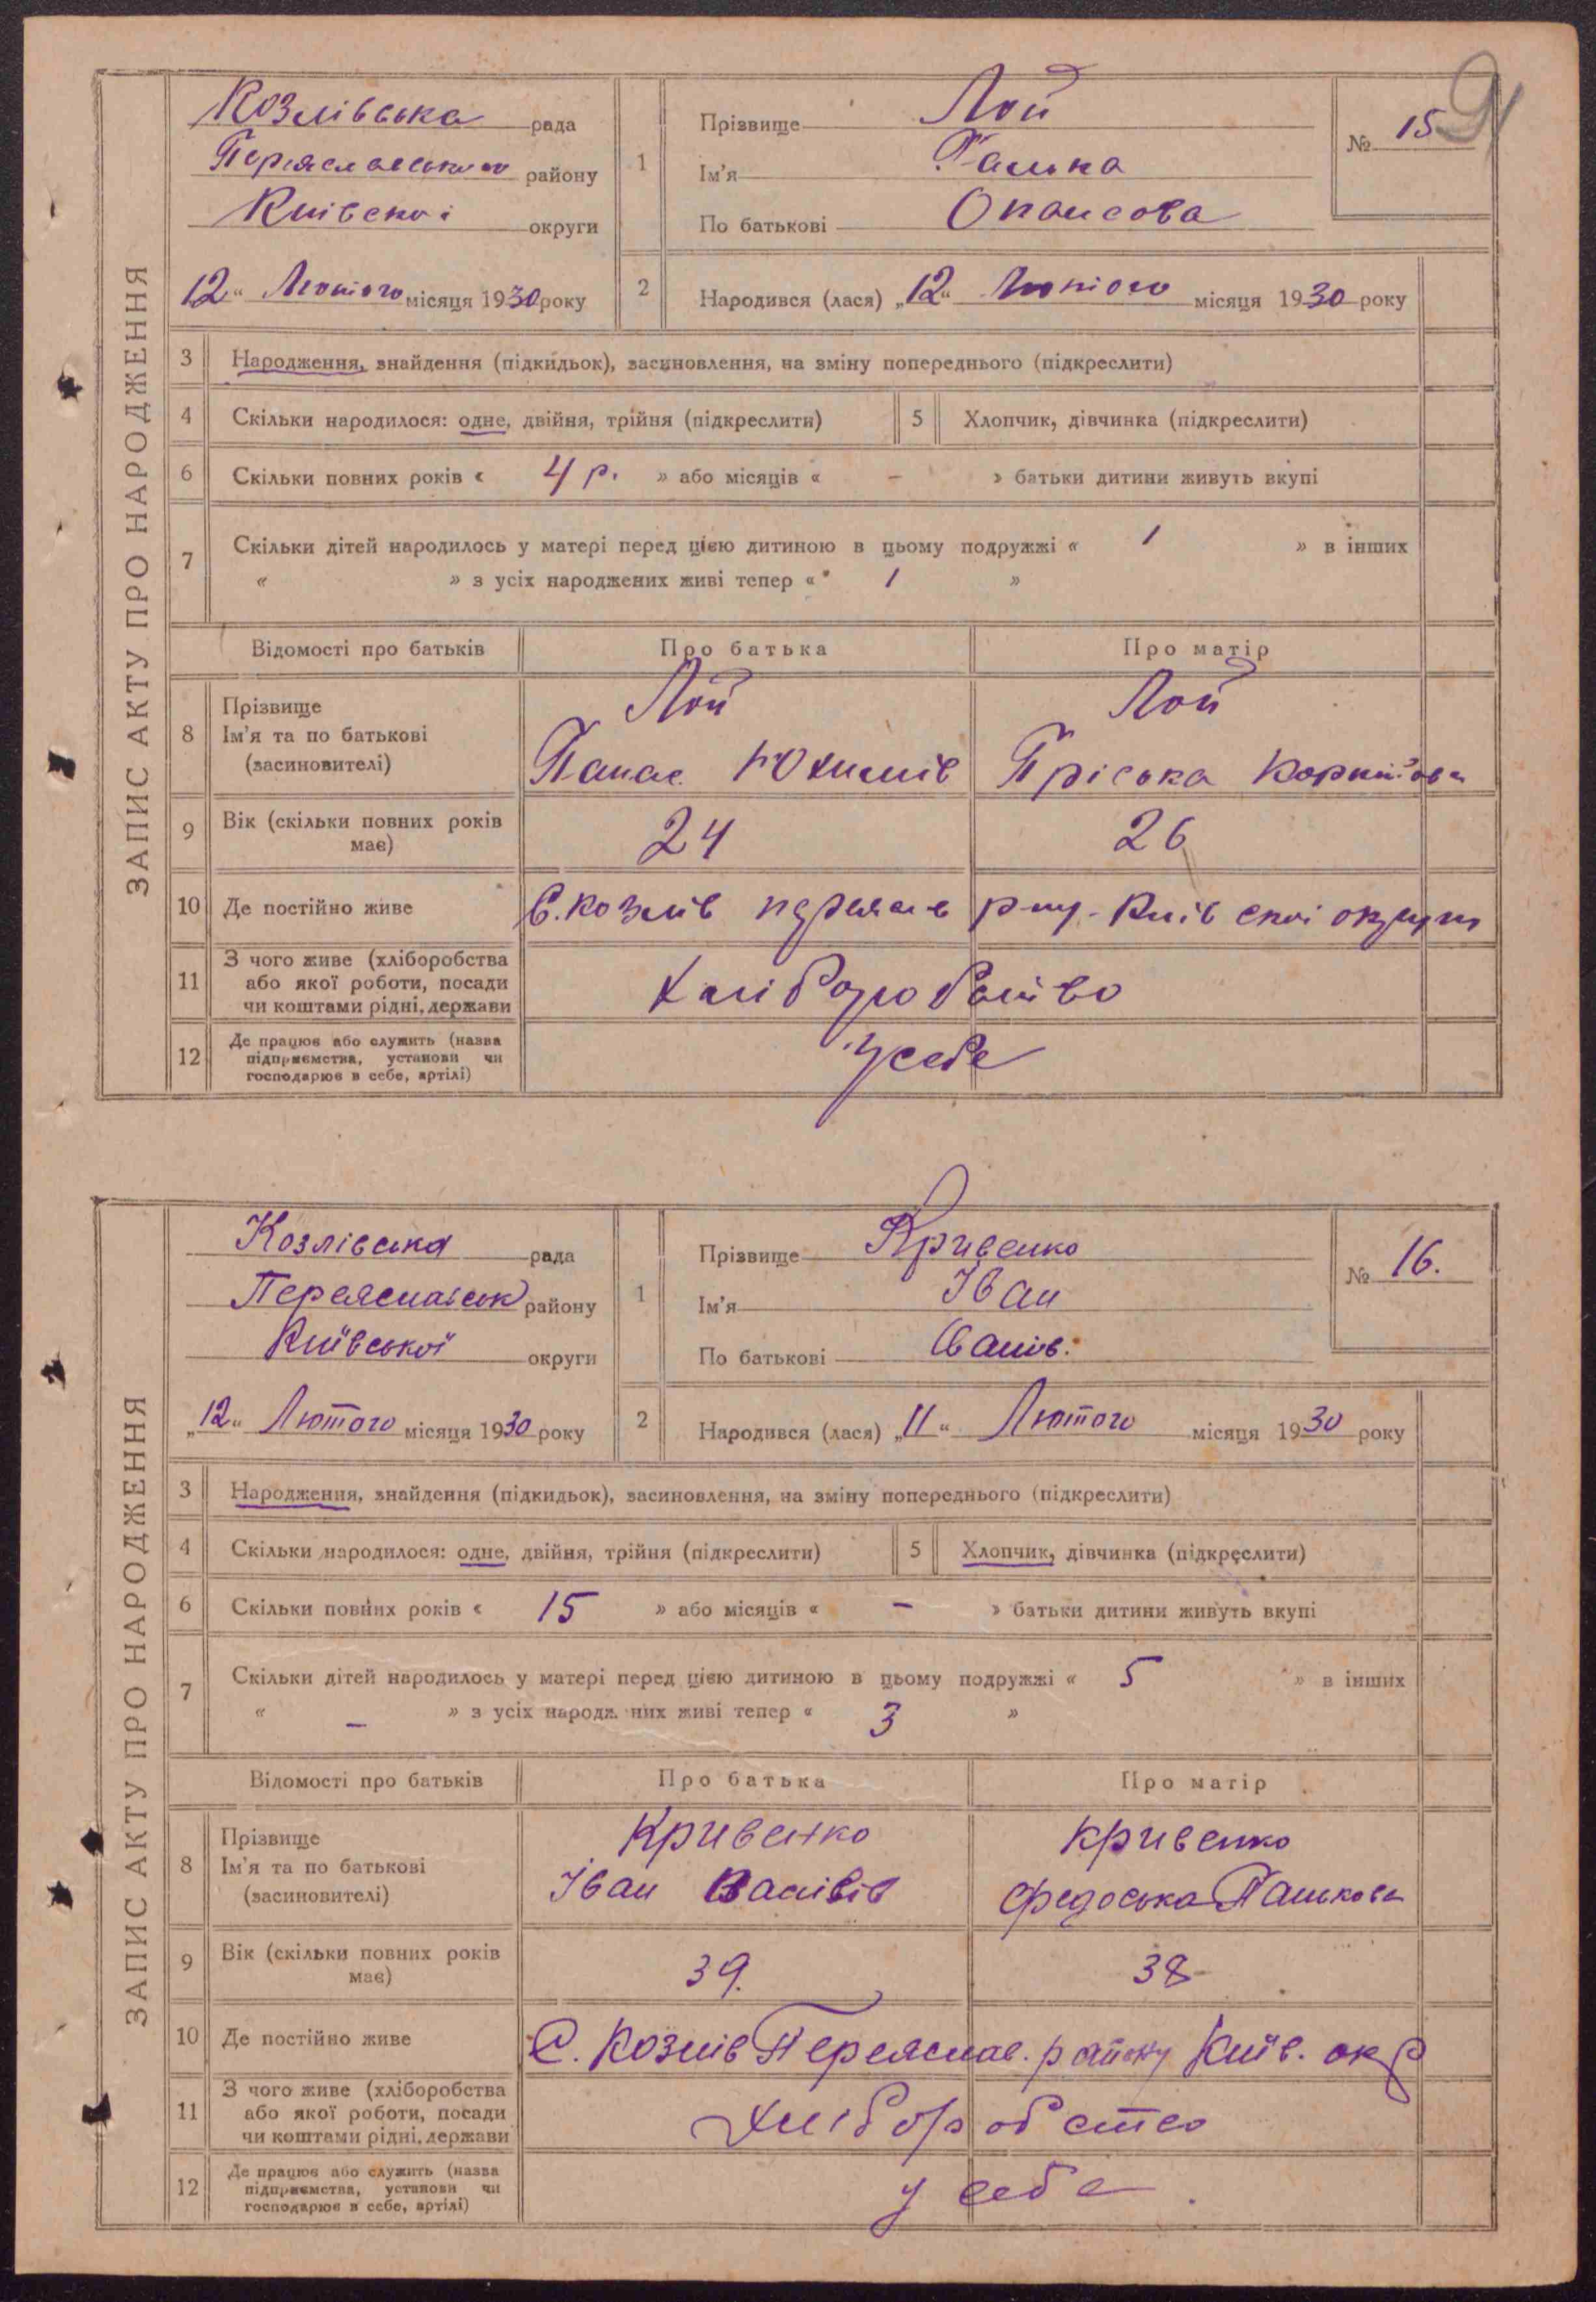 91
ЗАПИС АКТУ ПРО НАРОДЖЕННЯ
Козлівська рада
Переяславського району
Київскоі округи
„12“ Лютого місяця 1930 року
1 Прізвище Лой
Ім'я Галька
По батькові Опансова
№ 15
2 Народився (лася) „12“ Лютого місяця 1930 року
3 Народження, знайдення (підкидьок), засиновлення, на зміну попереднього (підкреслити)
4 Скільки народилося: одне, двійня, трійня (підкреслити) 5 Хлопчик, дівчинка (підкреслити)
6 Скільки повних років « 4 р. » або місяців « - » батьки дитини живуть вкупі
7 Скільки дітей народилось у матері перед цією дитиною в цьому подружжі « 1 » в інших
« » з усіх народжених живі тепер « 1 »
Відомості про батьків Про батька Про матір
8 Прізвище
Ім'я та по батькові
(засиновителі)
Лой
Панас Юхимів
Лой
Пріська
9 Вік (скільки повних років
має)
24 26
10 Де постійно живе С. Козлів переяв р-ну Київ скоі округи
11 З чого живе (хліборобства
або якої роботи, посади
чи коштами рідні, держави
Хліборобство
12 Де працює або служить (назва
підприємства, установи чи
господарює в себе, артілі)
у себе
ЗАПИС АКТУ ПРО НАРОДЖЕННЯ
Козлівська рада
Переяславськ району
Київської округи
„12“ Лютого місяця 1930 року
1 Прізвище Кривенко
Ім'я Іван
По батькові Іванів.
№ 16.
2 Народився (лася) „11“ Лютого місяця 1930 року
3 Народження, знайдення (підкидьок), засиновлення, на зміну попереднього (підкреслити)
4 Скільки народилося: одне, двійня, трійня (підкреслити) 5 Хлопчик, дівчинка (підкреслити)
6 Скільки повних років « 15 » або місяців « - » батьки дитини живуть вкупі
7 Скільки дітей народилось у матері перед цією дитиною в цьому подружжі « 5 » в інших
« - » з усіх народж них живі тепер « 3 »
Відомості про батьків Про батька Про матір
8 Прізвище
Ім'я та по батькові
(засиновителі)
Кривенко
Іван
Кривенко
Федоська Панькова
9 Вік (скільки повних років
має)
39. 38
10 Де постійно живе С. Козлів Переяслав. району Київ. окр
11 З чого живе (хліборобства
або якої роботи, посади
чи коштами рідні, держави
хліборобство
12 Де працює або служить (назва
підприємства, установи чи
господарює в себе, артілі)
у себе.